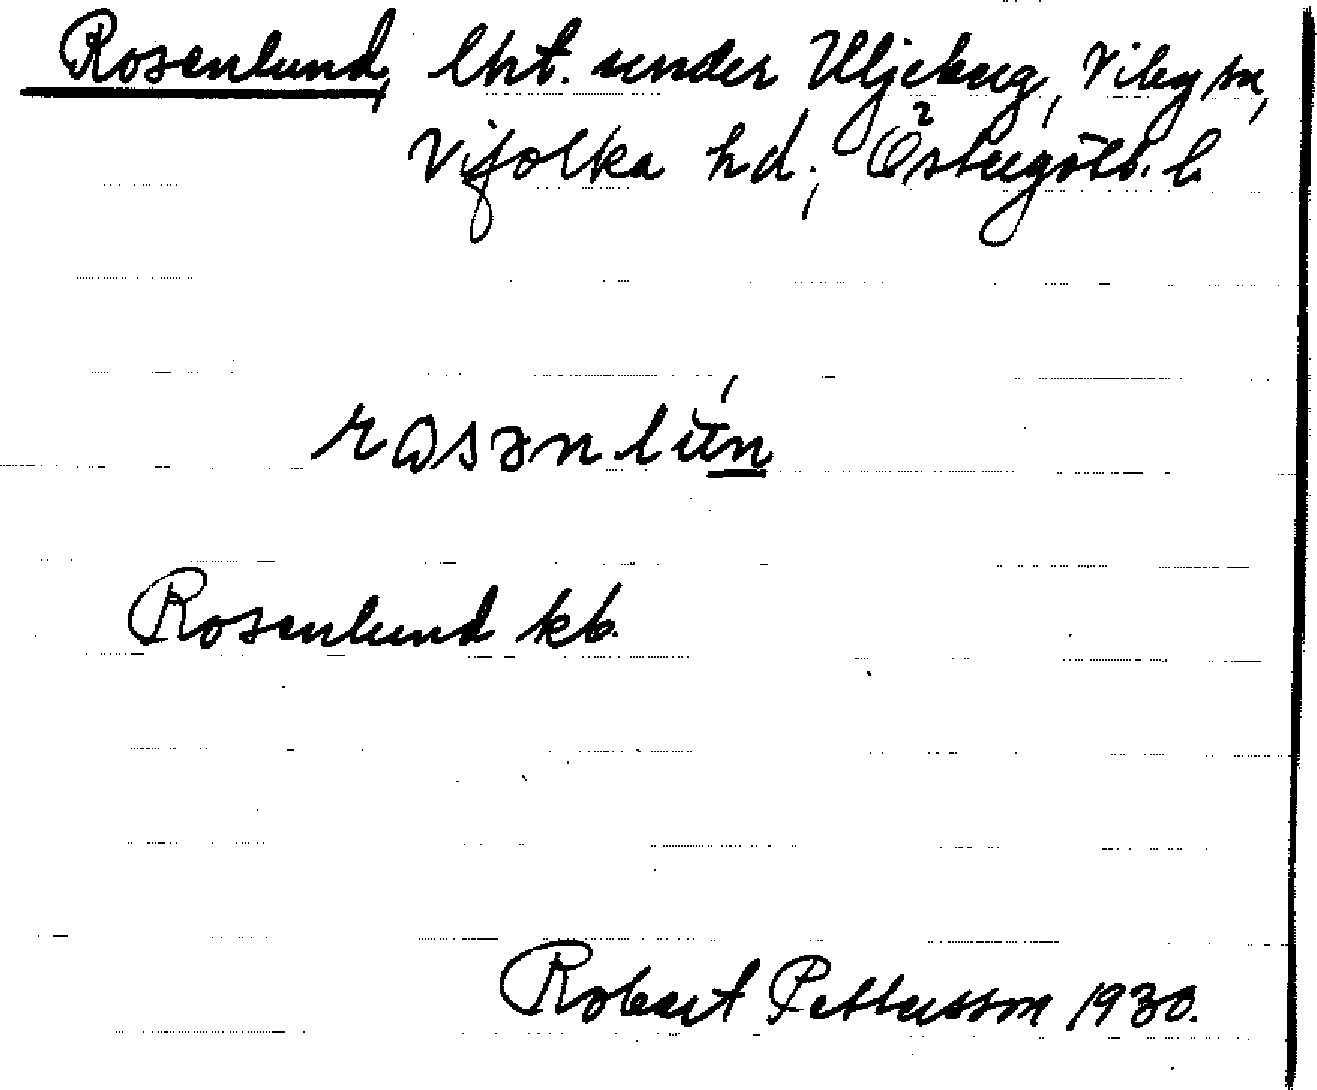 Rosenlund, lht. under Uljeberg, Viby sn,
Vifolka hd., Östergötl. l.
rosənlún
Rosenlund kb.
Robert Pettersson 1930.